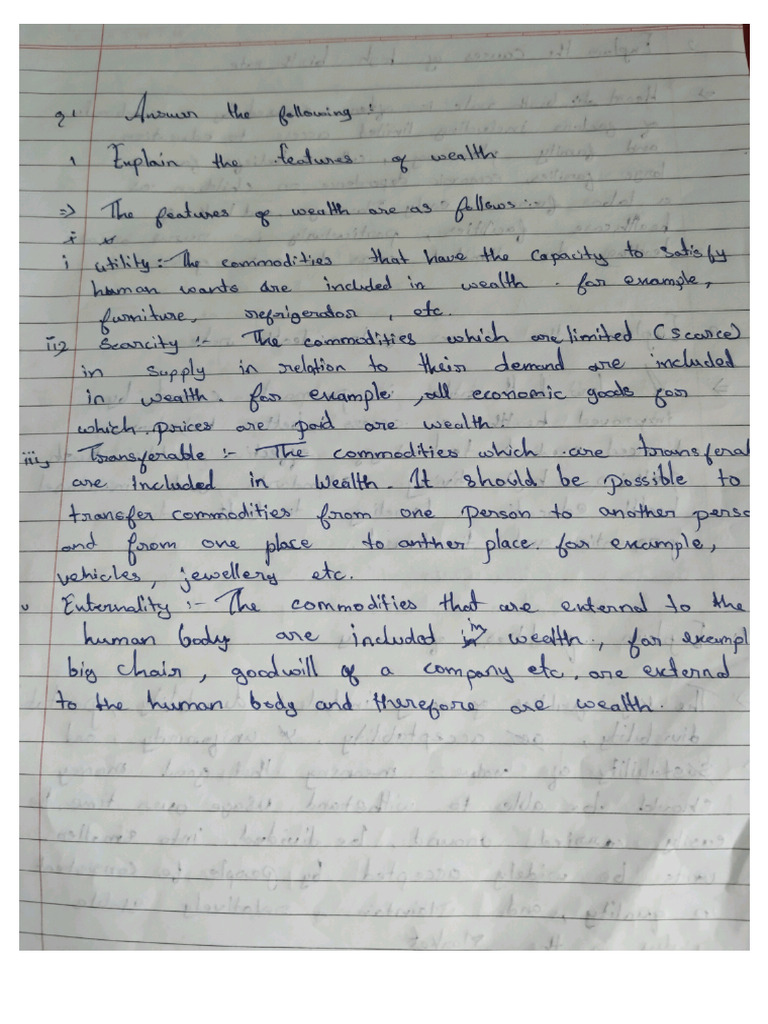 Q1 Answer the following :
1 Explain the features of wealth
⇒ The features of wealth are as follows :-
i utility :- The commodities that have the capacity to satisfy
human wants are included in wealth . for example,
furniture, refrigerator , etc.
ii) Scarcity :- The commodities which are limited (scarce)
in supply in relation to their demand are included
in wealth . for example , all economic goods for
which prices are paid are wealth.
iii) Transferable :- The commodities which are transferal
are included in wealth. It should be possible to
transfer commodities from one person to another perso
and from one place to anther place. for example,
vehicles, jewellery etc.
v Externality :- The commodities that are external to the
human body are included in wealth , for exampl
big chair , goodwill of a company etc. are external
to the human body and therefore are wealth.